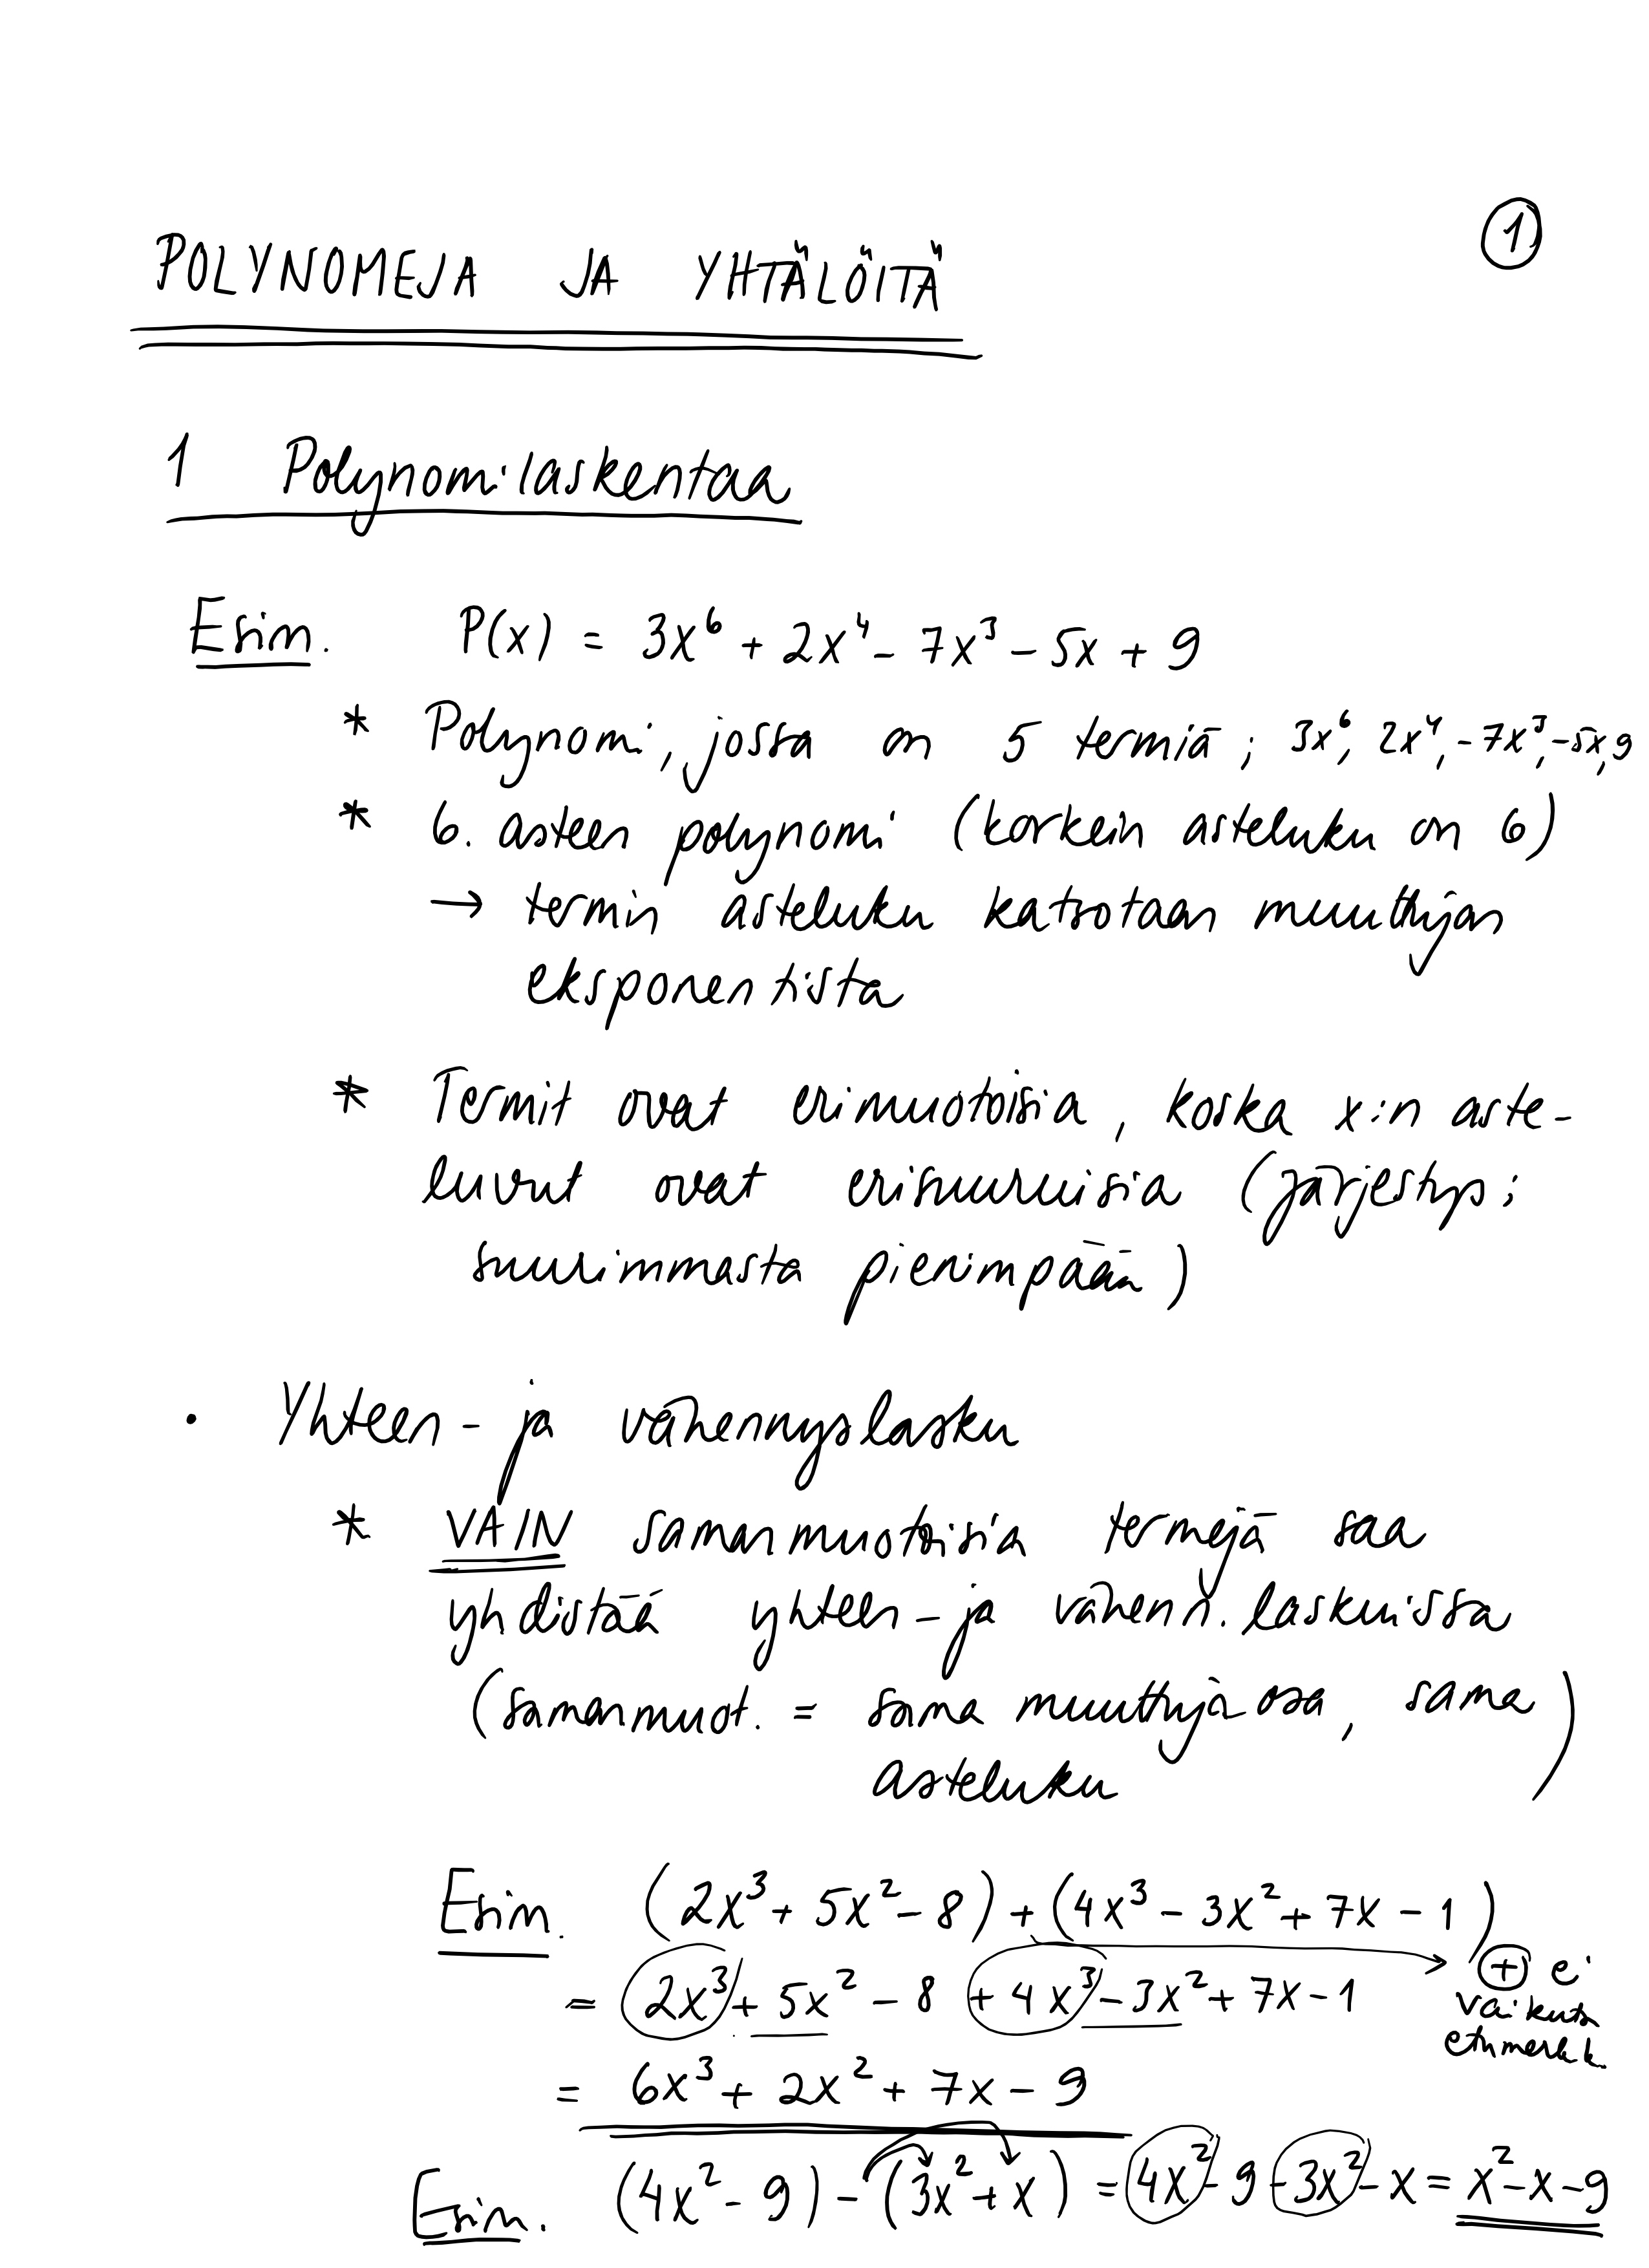 ①
POLYNOMEJA JA YHTÄLÖITÄ
1 Polynomilaskentaa
Esim. P(x) = 3x⁶ + 2x⁴ - 7x³ - 5x + 9
* Polynomi, jossa on 5 termiä; 3x⁶, 2x⁴, -7x³, -5x, 9
* 6. asteen polynomi (korkein asteluku on 6)
→ termin asteluku katsotaan muuttujan
eksponentista
* Termit ovat erimuotoisia, koska x:n aste-
luvut ovat erisuuruisia (järjestys:
suurimmasta pienimpään)
· Yhteen- ja vähennyslasku
* VAIN samanmuotoisia termejä saa
yhdistää yhteen- ja vähenn. laskuissa
(samanmuot. = sama muuttujaosa, sama
asteluku)
Esim. (2x³ + 5x² - 8) + (4x³ - 3x² + 7x - 1)
= 2x³ + 5x² - 8 + 4x³ - 3x² + 7x - 1
⊕ ei
vaikuta
etumerkk.
= 6x³ + 2x² + 7x - 9
Esim. (4x² - 9) - (3x² + x) = 4x² - 9 - 3x² - x = x² - x - 9